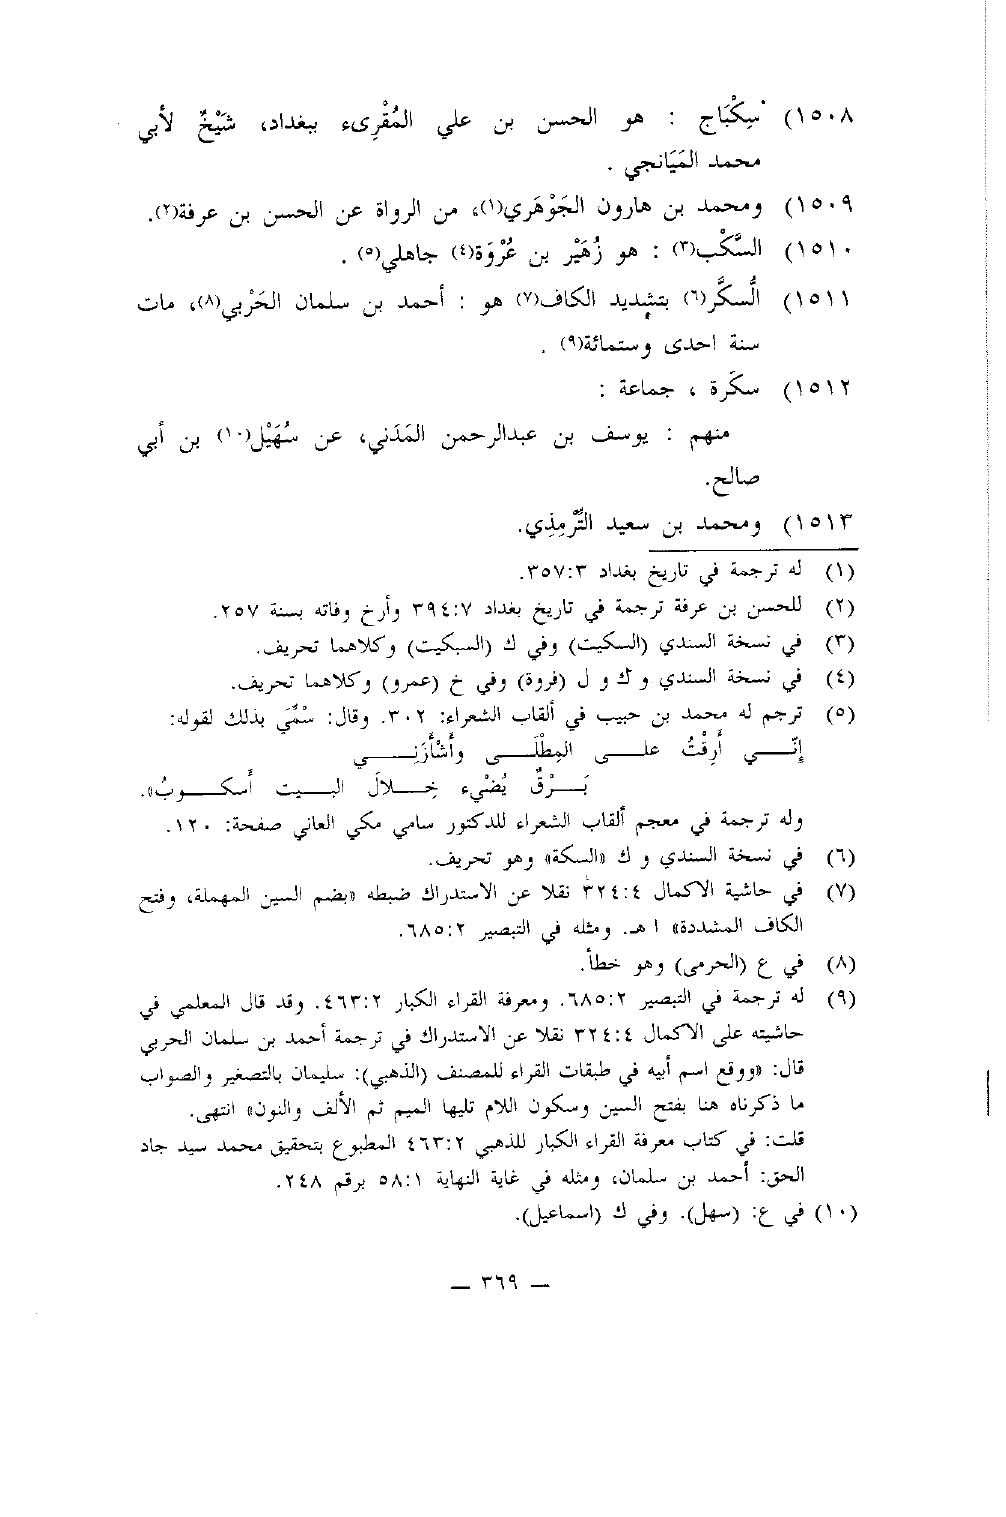 ١٥٠٨) سِكْبَاج : هو الحسن بن علي المُقْرِىء ببغداد، شَيْخٌ لأبي
محمد المَيَانجي .
١٥٠٩) ومحمد بن هارون الجَوْهَري(١)، من الرواة عن الحسن بن عرفة(٢).
١٥١٠) السَّكْب(٣) : هو زُهَيْر بن عُرْوَة(٤) جاهلي(٥) .
١٥١١) السُّكَّر(٦) بتشديد الكاف(٧) هو : أحمد بن سلمان الحَرْبي(٨)، مات
سنة احدى وستمائة(٩) .
١٥١٢) سكَرة ، جماعة :
منهم : يوسف بن عبدالرحمن المَدَني، عن سُهَيْل(١٠) بن أبي
صالح.
١٥١٣) ومحمد بن سعيد التِّرْمِذِي.
(١) له ترجمة في تاريخ بغداد ٣٥٧:٣.
(٢) للحسن بن عرفة ترجمة في تاريخ بغداد ٣٩٤:٧ وأرخ وفاته بسنة ٢٥٧.
(٣) في نسخة السندي (السكيت) وفي ك (السبكيت) وكلاهما تحريف.
(٤) في نسخة السندي و ك و ل (فروة) وفي خ (عمرو) وكلاهما تحريف.
(٥) ترجم له محمد بن حبيب في ألقاب الشعراء: ٣٠٢. وقال: سُمِّيَ بذلك لقوله:
إنّـــي أَرِقْتُ علـــى المِطْلَـــى وأَشْأَزَنِـــي
بَـــرْقٌ يُضْيء خِـــلالَ البـــيت أُسكـــوبُ».
وله ترجمة في معجم ألقاب الشعراء للدكتور سامي مكي العاني صفحة: ١٢٠.
(٦) في نسخة السندي و ك «السكة» وهو تحريف.
(٧) في حاشية الاكمال ٣٢٤:٤ نقلا عن الاستدراك ضبطه «بضم السين المهملة، وفتح
الكاف المشددة» ا هـ. ومثله في التبصير ٦٨٥:٢.
(٨) في ع (الحرمى) وهو خطأ.
(٩) له ترجمة في التبصير ٦٨٥:٢. ومعرفة القراء الكبار ٤٦٣:٢. وقد قال المعلمي في
حاشيته على الاكمال ٣٢٤:٤ نقلا عن الاستدراك في ترجمة أحمد بن سلمان الحربي
قال: «ووقع اسم أبيه في طبقات القراء للمصنف (الذهبي): سليمان بالتصغير والصواب
ما ذكرناه هنا بفتح السين وسكون اللام تليها الميم ثم الألف والنون» انتهى.
قلت: في كتاب معرفة القراء الكبار للذهبي ٤٦٣:٢ المطبوع بتحقيق محمد سيد جاد
الحق: أحمد بن سلمان، ومثله في غاية النهاية ٥٨:١ برقم ٢٤٨.
(١٠) في ع: (سهل). وفي ك (اسماعيل).
— ٣٦٩ —